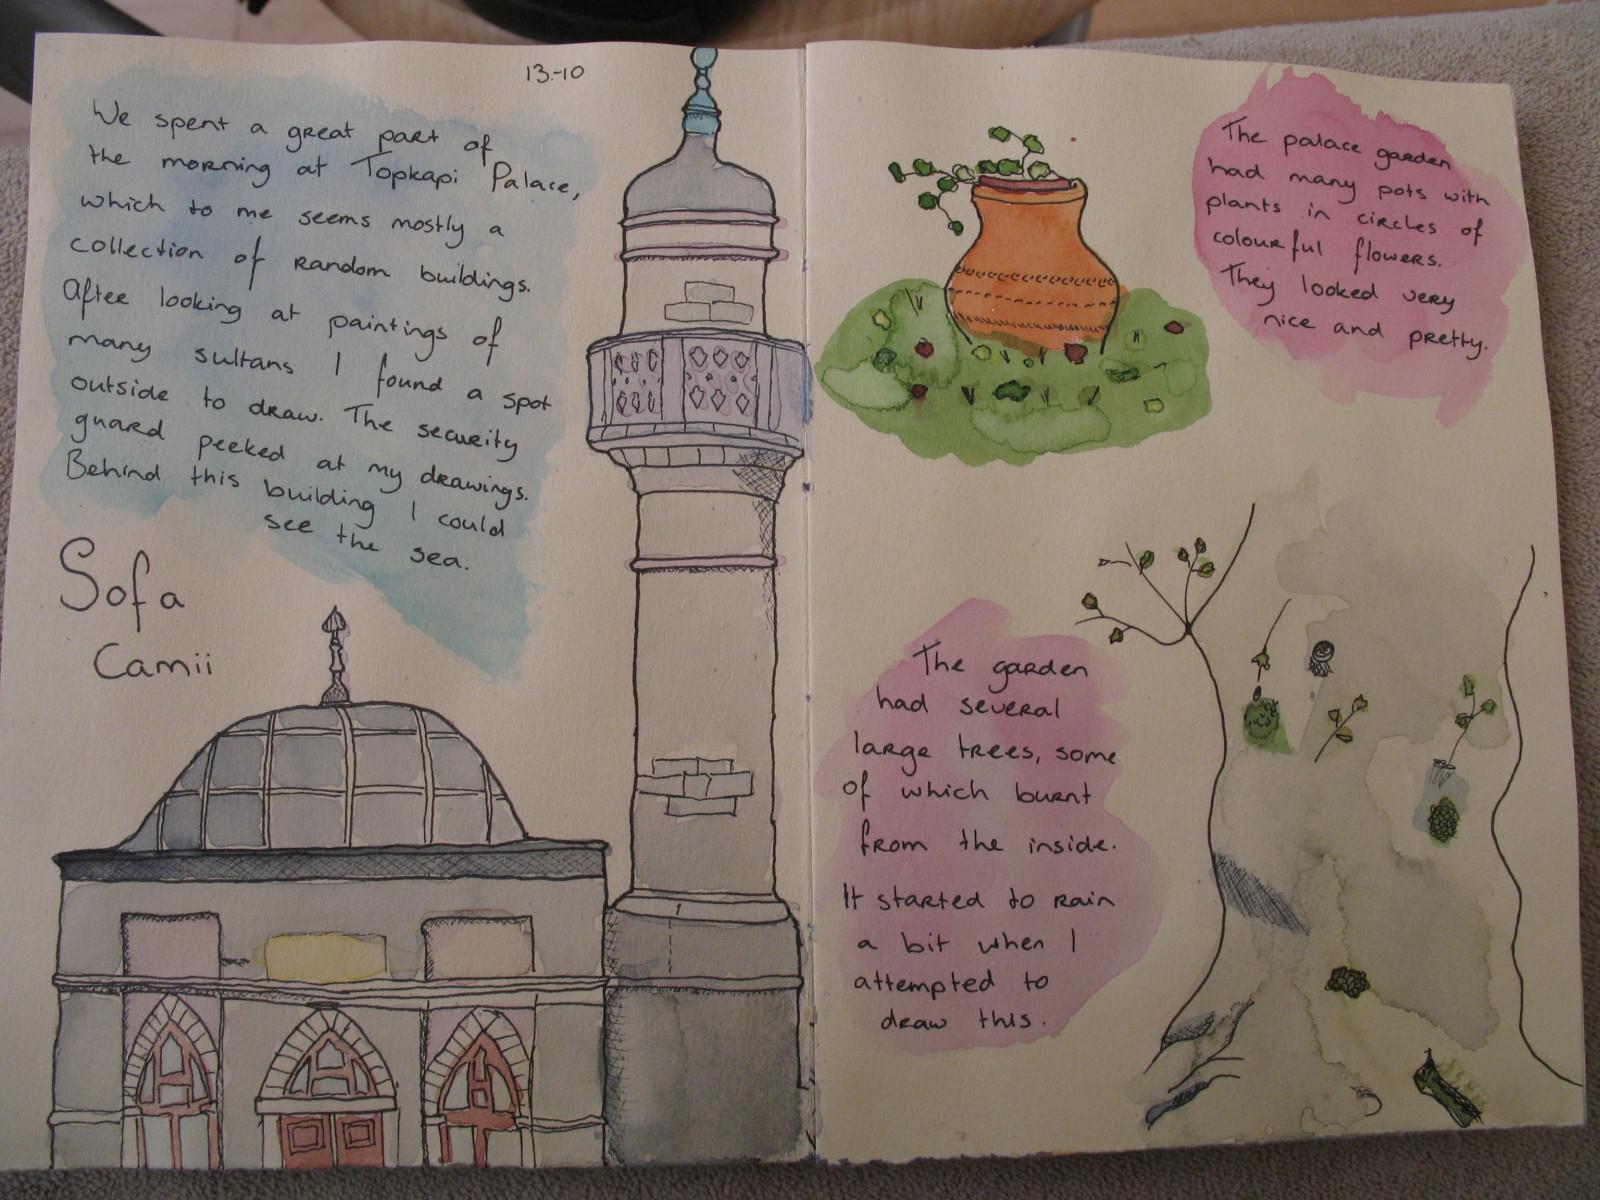 13-10
We spent a great part of
the morning at Topkapi Palace,
which to me seems mostly a
collection of random buildings.
After looking at paintings of
many sultans I found a spot
outside to draw. The security
guard peeked at my drawings.
Behind this building I could
see the sea.
Sofa
Camii
The palace garden
had many pots with
plants in circles of
colourful flowers.
They looked very
nice and pretty.
The garden
had several
large trees, some
of which burnt
from the inside.
It started to rain
a bit when I
attempted to
draw this.